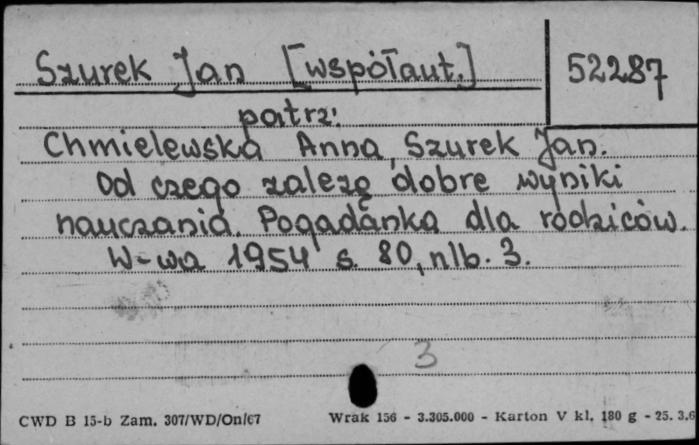 Szurek Jan [współaut.] 52287
patrz:
Chmielewska Anna, Szurek Jan.
Od czego zależą dobre wyniki
nauczania. Pogadanka dla rodziców.
W-wa 1954 s. 80, nlb. 3.
3
CWD B 15-b Zam. 307/WD/On/67 Wrak 156 - 3.305.000 - Karton V kl. 180 g - 25. 3.6